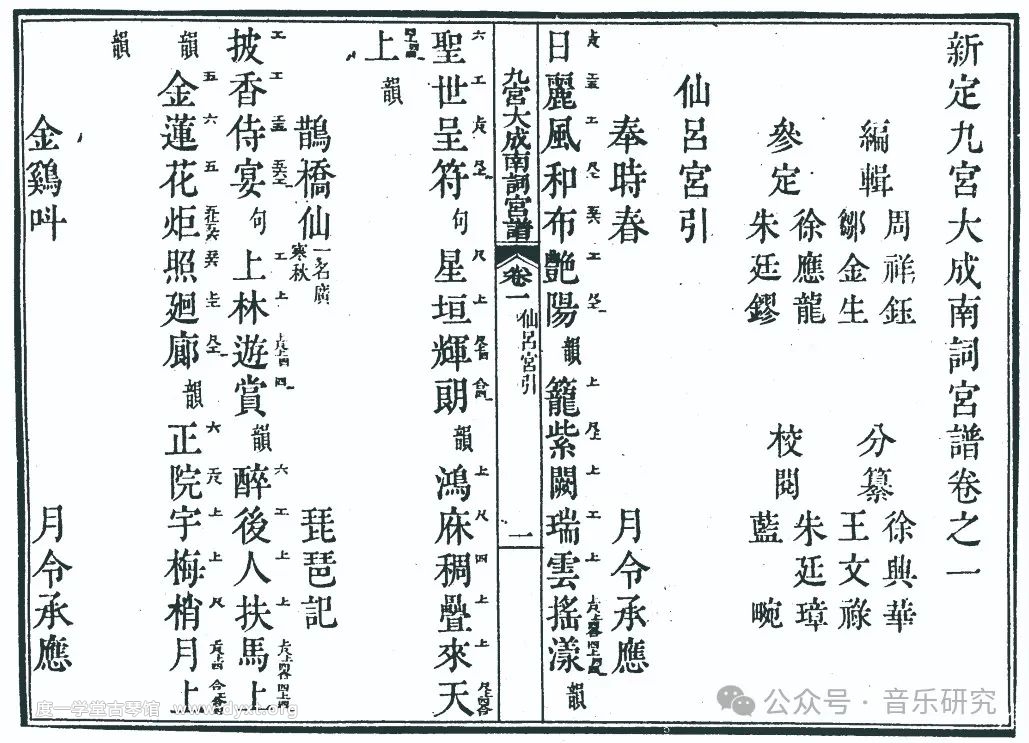 新定九宮大成南詞宮譜卷之一
編輯 周祥鈺 鄒金生 分纂 徐興華 王文祿
參定 徐應龍 朱廷鏐 校閱 朱廷璋 藍畹
仙呂宮引
奉時春 月令承應
日麗風和布艷陽韻籠紫闕瑞雲搖漾韻
九宮大成南詞宮譜 卷一 仙呂宮引 一
聖世呈符句星垣輝朗韻鴻庥稠疊來天
上韻
鵲橋仙一名廣寒秋 琵琶記
披香侍宴句上林遊賞韻醉後人扶馬上
韻金蓮花炬照廻廊韻正院宇梅梢月上
韻
金鷄呌 月令承應
度一学堂古琴馆 www.dyxt.org
公众号·音乐研究